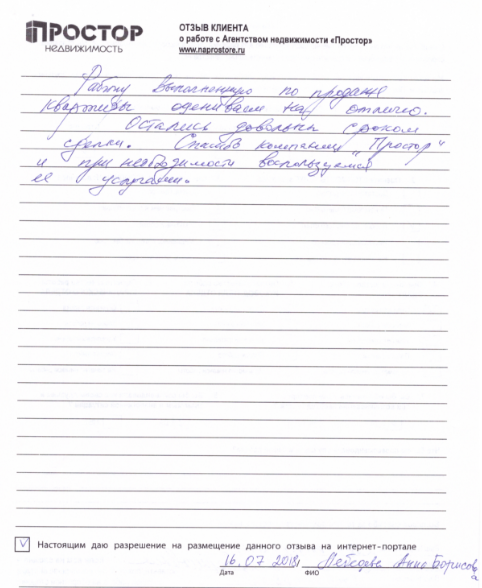 ПРОСТОР
НЕДВИЖИМОСТЬ
ОТЗЫВ КЛИЕНТА
о работе с Агентством недвижимости «Простор»
www.naprostore.ru
Работу выполненную по продаже
квартиры оцениваем на отлично.
Остались довольны сроком
сделки. Спасибо компании "Простор"
и при необходимости воспользуемся
ее услугами.
Настоящим даю разрешение на размещение данного отзыва на интернет-портале
16.07.2018г Лебедева Анна Борисовна
Дата ФИО